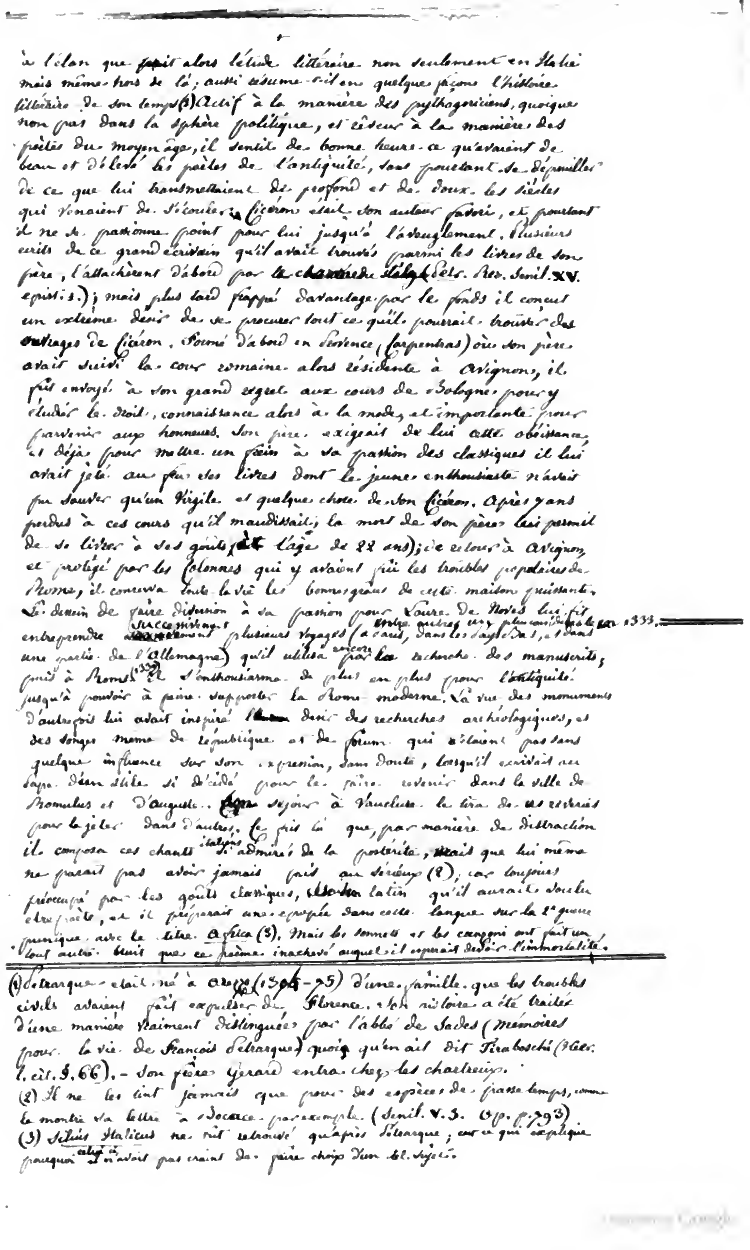 à l'élan que prit alors l'étude littéraire non seulement en Italie
mais même hors de là; aussi résume-t-il en quelque façon l'histoire
littéraire de son temps (1) Actif à la manière des pythagoriciens, quoique
non pas dans la sphère politique, et rêveur à la manière des
poètes du moyen âge, il sentit de bonne heure ce qu'avaient de
beau et d'élevé les poètes de l'antiquité, sans pourtant se dépouiller
de ce que lui transmettaient de profond et de doux les siècles
qui venaient de s'écouler. Cicéron était son auteur favori, et pourtant
il ne se passionne point pour lui jusqu'à l'aveuglement. Plusieurs
écrits de ce grand écrivain qu'il avait trouvés parmi les livres de son
père, l'attachèrent d'abord par le charme du style (Petr. Rer. Senil. XV.
epist. 1.); mais plus tard frappé davantage par le fonds il conçut
un extrême désir de se procurer tout ce qu'il pourrait trouver des
ouvrages de Cicéron. Formé d'abord en Provence, (Carpentras) où son père
avait suivi la cour romaine alors résidente à Avignon, il
fut envoyé à son grand regret aux cours de Bologne pour y
étudier le droit, connaissance alors à la mode, et importante pour
parvenir aux honneurs. Son père exigeait de lui cette obéissance,
et déjà pour mettre un frein à sa passion des classiques il lui
avait jeté au feu ses livres dont le jeune enthousiaste n'avait
pu sauver qu'un Virgile et quelque chose de son Cicéron. Après 7 ans
perdus à ces cours qu'il maudissait, la mort de son père lui permit
de se livrer à ses goûts (à l'âge de 22 ans); de retour à Avignon,
et protégé par les Colonnes qui y avaient fui les troubles populaires de
Rome, il conserva toute la vie les bonnes grâces de cette maison puissante.
Le dessein de faire diversion à sa passion pour Laure de Noves lui fit
entreprendre successivement plusieurs voyages (à Paris, dans les Pays-Bas, et dans
entre autres un plus considérable en 1333.
une partie de l'Allemagne) qu'il utilisa encore par la recherche des manuscrits;
puis à Rome il s'enthousiasma de plus en plus pour l'antiquité
jusqu'à pouvoir à peine supporter la Rome moderne. La vue des monuments
d'autrefois lui avait inspiré le désir des recherches archéologiques, et
des songes même de république et de forum qui n'étaient pas sans
quelque influence sur son expression, sans doute, lorsqu'il écrivait au
Pape d'un style si décidé pour le faire revenir dans la ville de
Romulus et d'Auguste. Son séjour à Vaucluse le tira de ses rêveries
pour le jeter dans d'autres. Ce fut là que, par manière de distraction
il composa ces chants italiens si admirés de la postérité, mais que lui même
ne paraît pas avoir jamais pris au sérieux (2); car toujours
préoccupé par les goûts classiques, latin qu'il aurait voulu
être poète, et il préparait une épopée dans cette langue sur la 2e guerre
punique avec le titre Africa (3). Mais les sonnets et les canzoni ont fait un
tout autre bruit que ce poème inachevé auquel il espérait devoir l'immortalité.
(1) Pétrarque était né à Arezzo (1304-75) d'une famille que les troubles
civils avaient fait expulser de Florence. Son histoire a été traitée
d'une manière vraiment distinguée par l'abbé de Sades (Mémoires
pour la vie de François Pétrarque) quoiq qu'en ait dit Tiraboschi (
l. cit. §. 66). - Son frère Gérard entra chez les chartreux.
(2) Il ne les tint jamais que pour des espèces de passe-temps, comme
le montre sa lettre à Bocace par exemple. (Senil. V. 3. Op. p. 793)
(3) Silius Italicus ne fut retrouvé qu'après Pétrarque; ce qui explique
pourquoi celui-ci n'avait pas craint de faire choix d'un tel sujet.